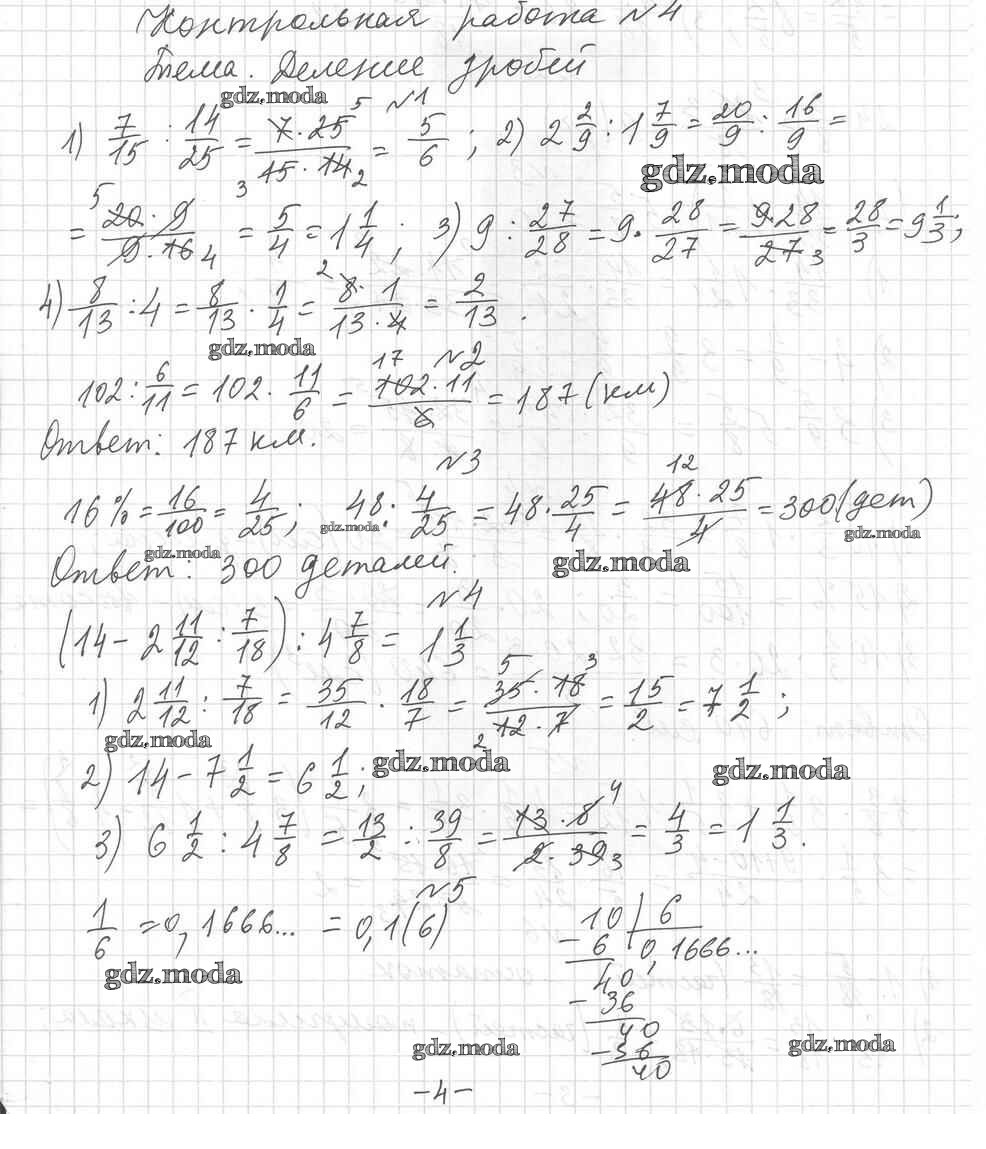 Контрольная работа №4
Тема. Деление дробей
gdz.moda
№1
1) 7/15 : 14/25 = 7·25/15·14 = 5/6 ; 2) 2 2/9 : 1 7/9 = 20/9 : 16/9 =
gdz.moda
= 20·9/9·16 = 5/4 = 1 1/4 ; 3) 9 : 27/28 = 9 · 28/27 = 9·28/27 = 28/3 = 9 1/3 ;
4) 8/13 : 4 = 8/13 · 1/4 = 8·1/13·4 = 2/13 .
gdz.moda
№2
102 : 6/11 = 102 · 11/6 = 102·11/6 = 187 (км)
Ответ: 187 км.
№3
16% = 16/100 = 4/25 ; 48 : 4/25 = 48 · 25/4 = 48·25/4 = 300 (дет)
gdz.moda gdz.moda gdz.moda
Ответ: 300 деталей.
gdz.moda
№4
(14 - 2 11/12 : 7/18) : 4 7/8 = 1 1/3
1) 2 11/12 : 7/18 = 35/12 · 18/7 = 35·18/12·7 = 15/2 = 7 1/2 ;
gdz.moda
2) 14 - 7 1/2 = 6 1/2 ;
gdz.moda gdz.moda
3) 6 1/2 : 4 7/8 = 13/2 : 39/8 = 13·8/2·39 = 4/3 = 1 1/3 .
№5
1/6 = 0,1666... = 0,1(6)
10 | 6
- 6 0,1666...
40
- 36
40
- 36
40
gdz.moda
gdz.moda gdz.moda
-4-